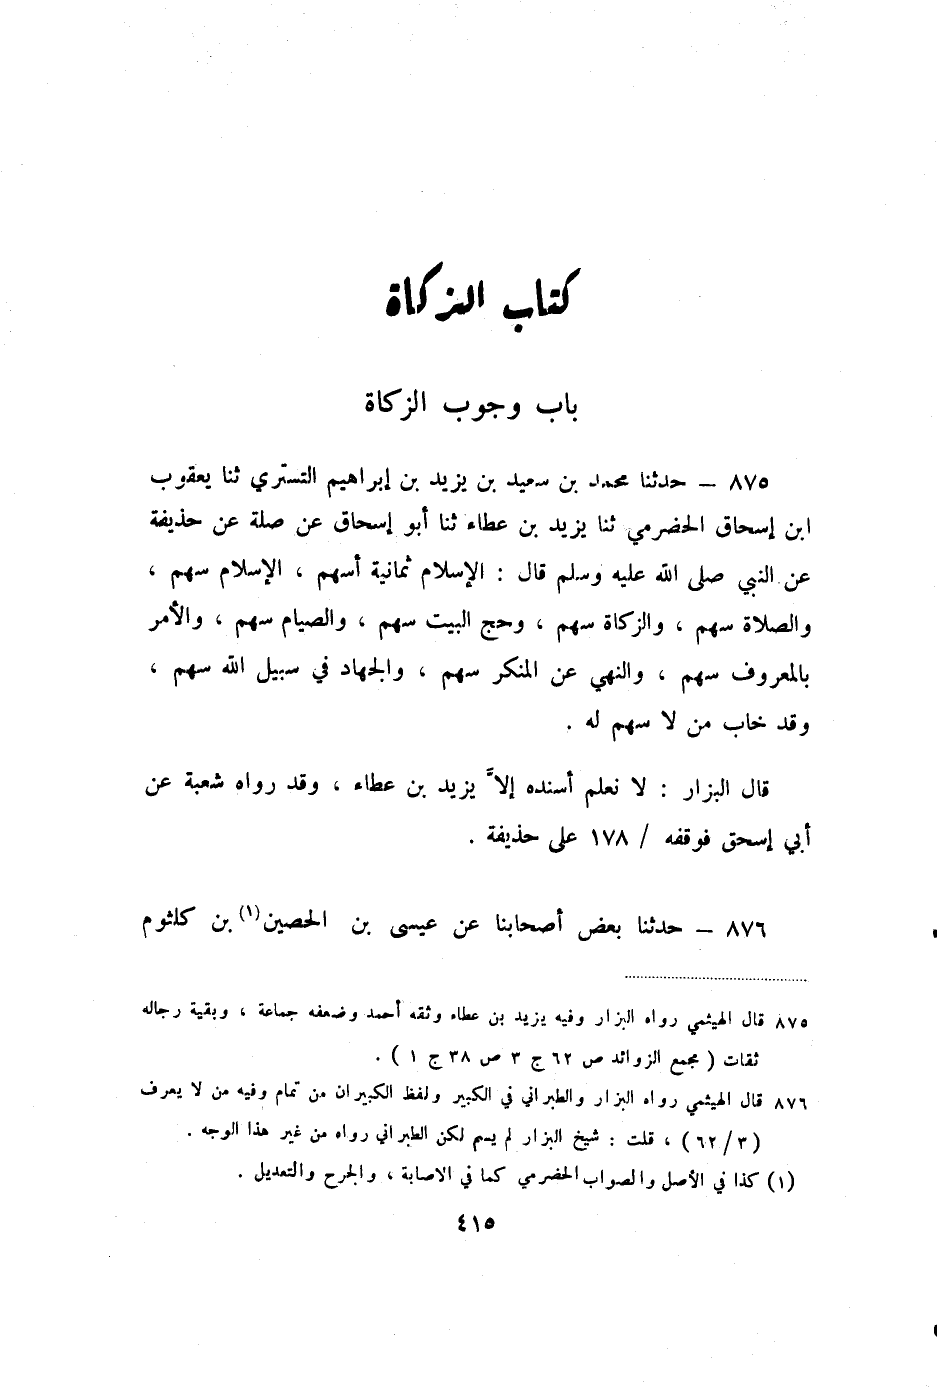 كتاب الزكاة
باب وجوب الزكاة
٨٧٥ – حدثنا محمد بن سعيد بن يزيد بن إبراهيم التستري ثنا يعقوب
ابن إسحاق الحضرمي ثنا يزيد بن عطاء ثنا أبو إسحاق عن صلة عن حذيفة
عن النبي صلى الله عليه وسلم قال : الإسلام ثمانية أسهم ، الإسلام سهم ،
والصلاة سهم ، والزكاة سهم ، وحج البيت سهم ، والصيام سهم ، والأمر
بالمعروف سهم ، والنهي عن المنكر سهم ، والجهاد في سبيل الله سهم ،
وقد خاب من لا سهم له .
قال البزار : لا نعلم أسنده إلاَّ يزيد بن عطاء ، وقد رواه شعبة عن
أبي إسحق فوقفه / ١٧٨ على حذيفة .
٨٧٦ – حدثنا بعض أصحابنا عن عيسى بن الحصين(١) بن كلثوم
٨٧٥ قال الهيثمي رواه البزار وفيه يزيد بن عطاء وثقه أحمد وضعفه جماعة ، وبقية رجاله
ثقات ( مجمع الزوائد ص ٦٢ ج ٣ ص ٣٨ ج ١ ) .
٨٧٦ قال الهيثمي رواه البزار والطبراني في الكبير ولفظ الكبيران من تمام وفيه من لا يعرف
(٣/ ٦٢) ، قلت : شيخ البزار لم يسم لكن الطبراني رواه من غير هذا الوجه .
(١) كذا في الأصل والصواب الحضرمي كما في الاصابة ، والجرح والتعديل .
٤١٥